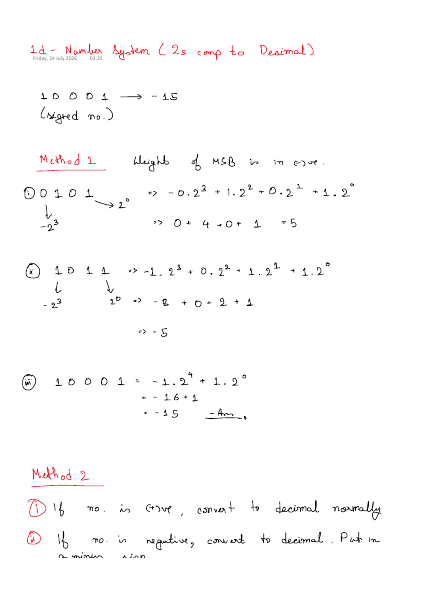 1d - Number System ( 2s comp to Decimal )
Friday, 24 July 2026 03:25
1 0 0 0 1 → - 15
(signed no.)
Method 1 Weight of MSB is in (-)ve.
(i) 0 1 0 1 → 2⁰ => - 0.2³ + 1.2² + 0.2¹ + 1.2⁰
↓
-2³ => 0 + 4 + 0 + 1 = 5
(ii) 1 0 1 1 => -1.2³ + 0.2² + 1.2¹ + 1.2⁰
↓ ↓
-2³ 2⁰ => - 8 + 0 + 2 + 1
=> - 5
(iii) 1 0 0 0 1 = -1.2⁴ + 1.2⁰
= - 16 + 1
= - 15 - Ans.
Method 2
(i) If no. is (+)ve, convert to decimal normally
(ii) If no. is negative, convert to decimal. Put in
a minus sign